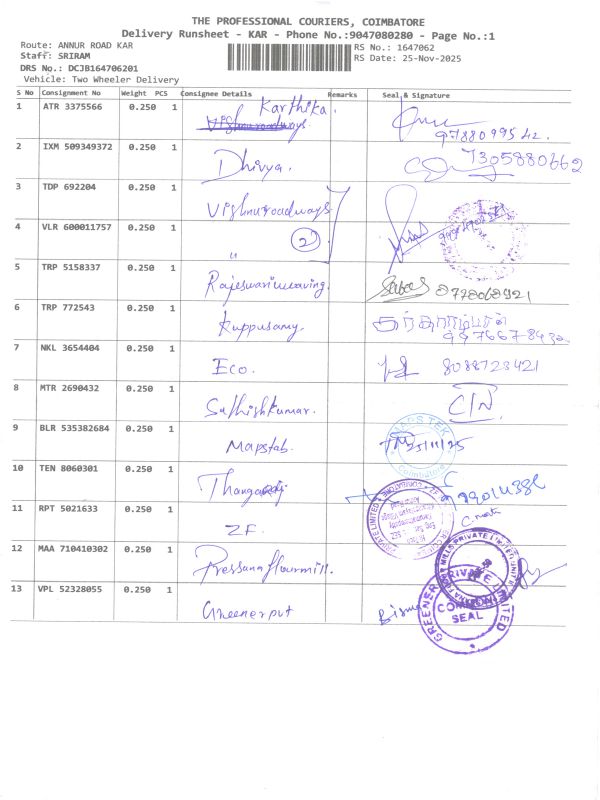 THE PROFESSIONAL COURIERS, COIMBATORE
Delivery Runsheet - KAR - Phone No.:9047080280 - Page No.:1
Route: ANNUR ROAD KAR
RS No.: 1647062
Staff: SRIRAM
RS Date: 25-Nov-2025
DRS No.: DCJB164706201
Vehicle: Two Wheeler Delivery
S No Consignment No Weight PCS Consignee Details Remarks Seal & Signature
1 ATR 3375566 0.250 1 Karthika. 9788099542.
2 IXM 509349372 0.250 1 Dhivya. 7305880662
3 TDP 692204 0.250 1 Vishnuroadways
4 VLR 600011757 0.250 1 " 2
5 TRP 5158337 0.250 1 Rajeswariweaving.
6 TRP 772543 0.250 1 Kuppusamy.
7 NKL 3654404 0.250 1 Eco. 8088723421
8 MTR 2690432 0.250 1 Sathishkumar.
9 BLR 535382684 0.250 1 Mapstab. 25/11/25
MAPS TEK
Coimbatore
10 TEN 8060301 0.250 1
11 RPT 5021633 0.250 1 ZF.
12 MAA 710410302 0.250 1 Pressana flourmill.
MILLS PRIVATE LIMITED
13 VPL 52328055 0.250 1 Greenerput
COMMON
SEAL